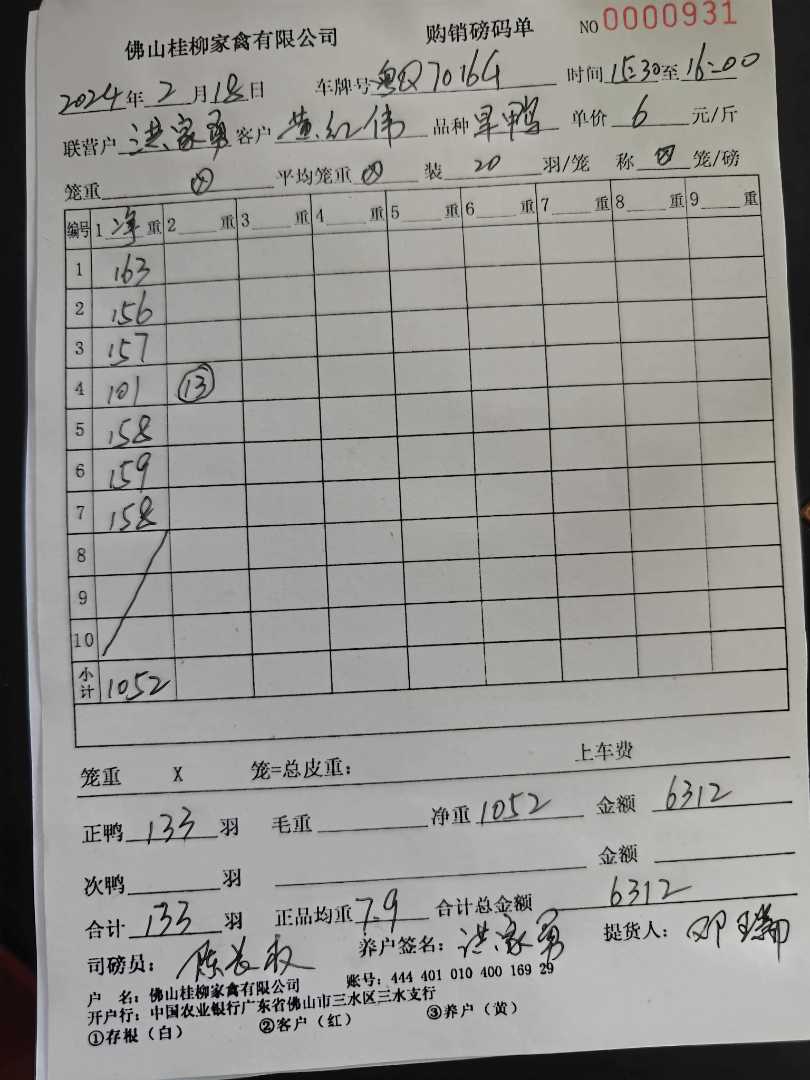 佛山桂柳家禽有限公司 购销磅码单 NO 0000931
2024年2月18日 车牌号粤Q7016G 时间15:30至16:00
联营户 洪家勇 客户 黄红伟 品种 旱鸭 单价 6 元/斤
笼重 平均笼重 装 20 羽/笼 称 笼/磅
编号 1 净 重 2 重 3 重 4 重 5 重 6 重 7 重 8 重 9 重
1 163
2 156
3 157
4 101 ⑬
5 158
6 159
7 158
8
9
10
小计 1052
笼重 X 笼=总皮重: 上车费
正鸭 133 羽 毛重 净重 1052 金额 6312
次鸭 羽 金额
合计 133 羽 正品均重 7.9 合计总金额 6312
司磅员: 陈 权 养户签名: 洪家勇 提货人: 邓
户 名: 佛山桂柳家禽有限公司 账号: 444 401 010 400 169 29
开户行: 中国农业银行广东省佛山市三水区三水支行
①存根(白) ②客户(红) ③养户(黄)